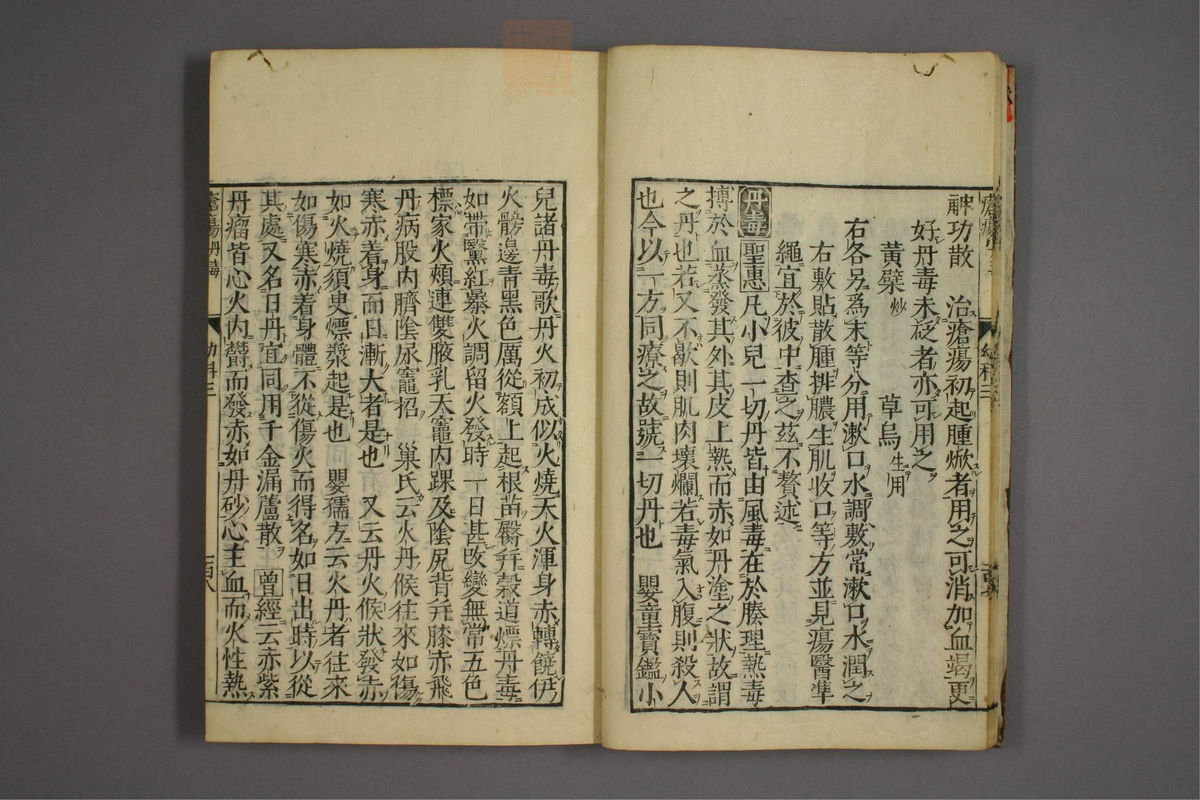 神功散　治瘡瘍初起腫焮者用之可消加血竭更
好丹毒未砭者亦可用之
黄檗炒　草烏生用
右各另爲末等分用漱口水調敷常漱口水潤之
右敷貼散腫排膿生肌收口等方並見瘍醫準
繩宜於彼中查之茲不贅述
丹毒 聖惠凡小兒一切丹皆由風毒在於腠理熱毒
搏於血蒸發其外其皮上熱而赤如丹塗之狀故謂
之丹也若又不歇則肌肉壞爛若毒氣入腹則殺人
也今以一方同療之故號一切丹也　嬰童寶鑑小
兒諸丹毒歌丹火初成似火燒天火渾身赤轉饒伊
火髈邊青黑色厲從額上起根苗臀并穀道熛丹毒
如帶翳紅暴火調留火發時一日甚改變無常五色
標家火頰連雙腋乳天竈内踝及陰尻背并膝赤飛
丹病股内臍陰尿竈招　巢氏云火丹候往來如傷
寒赤着身而日漸大者是也　又云丹火候狀發赤
如火燒須臾熛漿起是也　嬰孺方云火丹者往來
如傷寒赤着身體不從傷火而得名如日出時以從
其處又名日丹宜同用千金漏蘆散　曾經云赤紫
丹瘤皆心火内欝而發赤如丹砂心主血而火性熱
瘡瘍丹毒　幼科三　百八